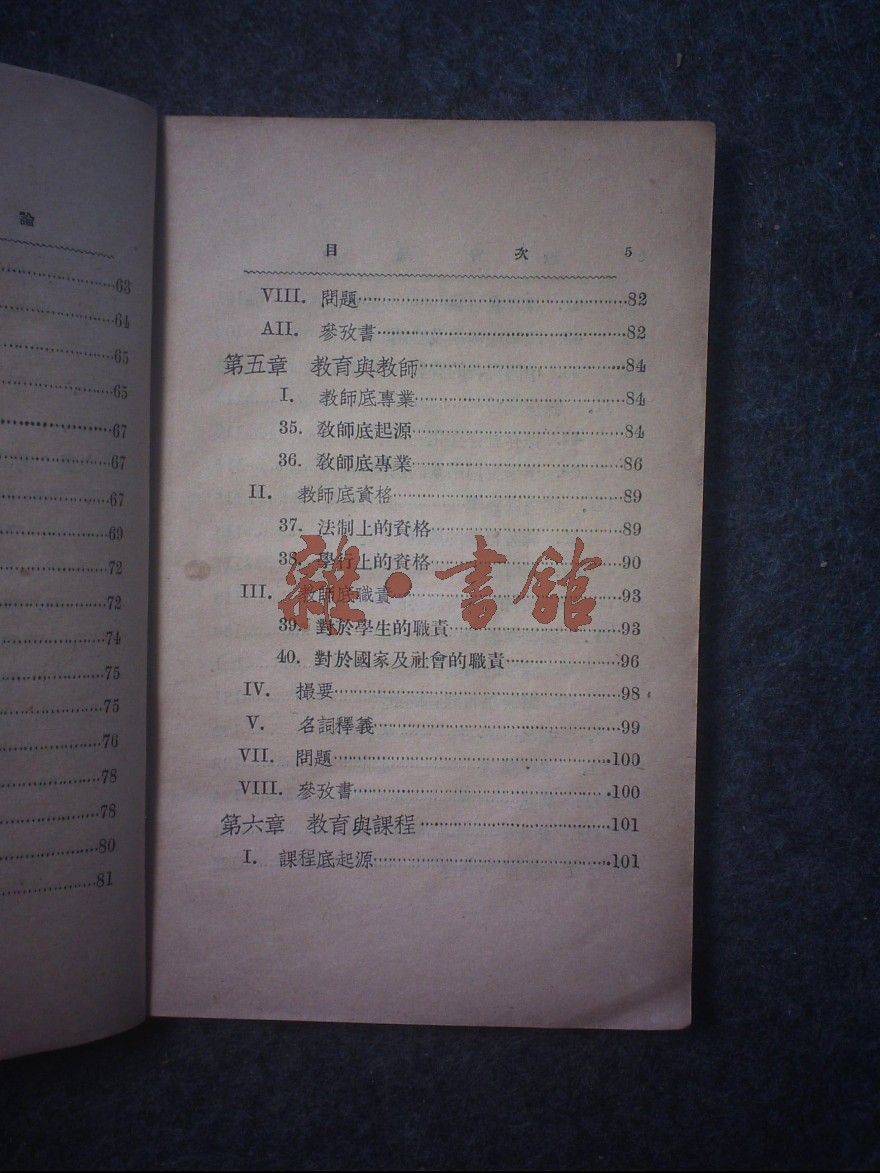 63
64
65
65
67
67
67
69
72
72
74
75
75
76
78
78
80
81
目 次 5
VIII. 問題……82
AII. 參攷書……82
第五章 教育與教師……84
I. 教師底專業……84
35. 教師底起源……84
36. 教師底專業……86
II. 教師底資格……89
37. 法制上的資格……89
38. 學行上的資格……90
III. 教師底職責……93
39. 對於學生的職責……93
40. 對於國家及社會的職責……96
IV. 撮要……98
V. 名詞釋義……99
VII. 問題……100
VIII. 參攷書……100
第六章 教育與課程……101
I. 課程底起源……101
雜·書館